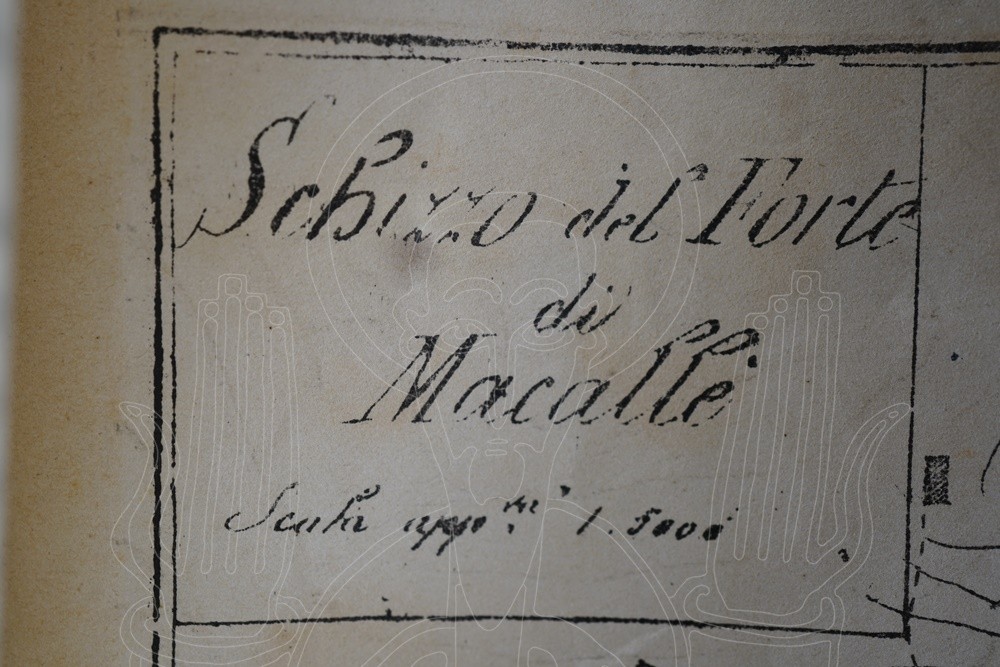 Schizzo del Forte
di
Macallè
Scala app.ᵐᵃ 1.5000